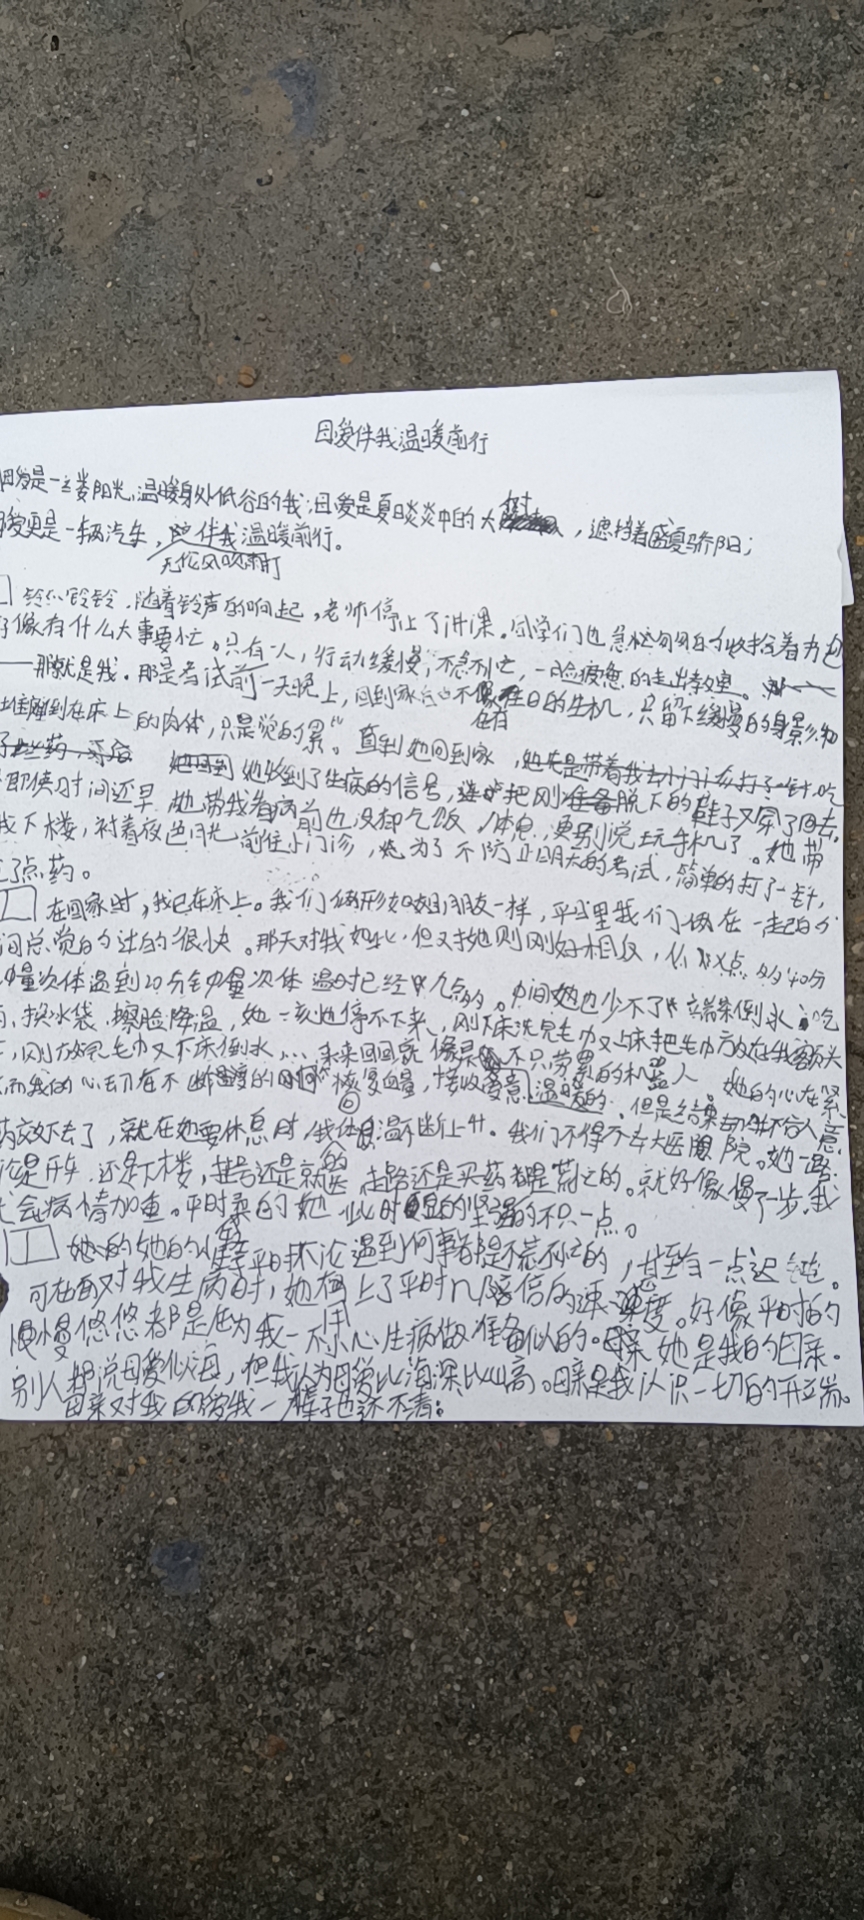 母爱伴我温暖前行
母爱是一缕阳光,温暖身处低谷的我;母爱是夏日炎炎中的大树,遮挡着盛夏骄阳;
母爱更是一辆汽车,无论风吹雨打伴我温暖前行。
铃铃铃铃,随着铃声的响起,老师停止了讲课。同学们也急忙匆匆的收拾着书包
好像有什么大事要忙。只有一人,行动缓慢,不急不忙,一脸疲惫的走出教室。
——那就是我。那是考试前一天晚上,回到家 也不像在往日的生机,只留下缓慢的身影和
瘫到在床上的肉体,只是觉的“累”。直到她回到家,她先是带着我去小门诊打了一针,吃
了些药,
她收到了生病的信号,把刚准备脱下的鞋子又穿了回去,
即使时间还早 她带我看病前也没却吃饭,休息,更别说玩手机了。她带
我下楼,衬着夜色月光前往小门诊,她为了不防止明天的考试,简单的打了一针,
了点药。
在回家时,我已在床上。我们俩形如姐朋友一样,平日里我们俩在一起的时
间总觉的过的很快。那天对我如此,但又对她则刚好相反,从 点多的40分
钟量次体温到20分钟量次体温时已经是九点的。中间她也少不了 端茶倒水,吃
药,换冰袋,擦脸降温,她一刻也停不下来,刚下床洗完毛巾又上床把毛巾放在我额头
上,刚放完毛巾又下床倒水…来来回回就像是不只劳累的机器人。她的心在紧
而我的心却在不断温度的 恢复血量,接收爱意,温暖的。但是结果却并不合人意
药效下去了,就在她要休息时,我体温不断上升。我们不得不去大医院。她一路
论是开车,还是下楼,挂号还是就医,走路还是买药都是慌忙的。就好像慢了一步,我
就会病情加重。平时柔的她 此时更显的坚强的不只一点。
她的 平时不论遇到何事都是不慌不忙的,甚至有一点迟钝。
可在面对我生病时,她拥上了平时几倍的速度。好像平时的
慢慢悠悠都是因为我一不小心生病做准备用似的。母亲,她是我的母亲。
别人都说母爱似海,但我认为母爱比海深比山高。母亲是我认识一切的开端。
母亲对我的爱我一辈子也还不清。